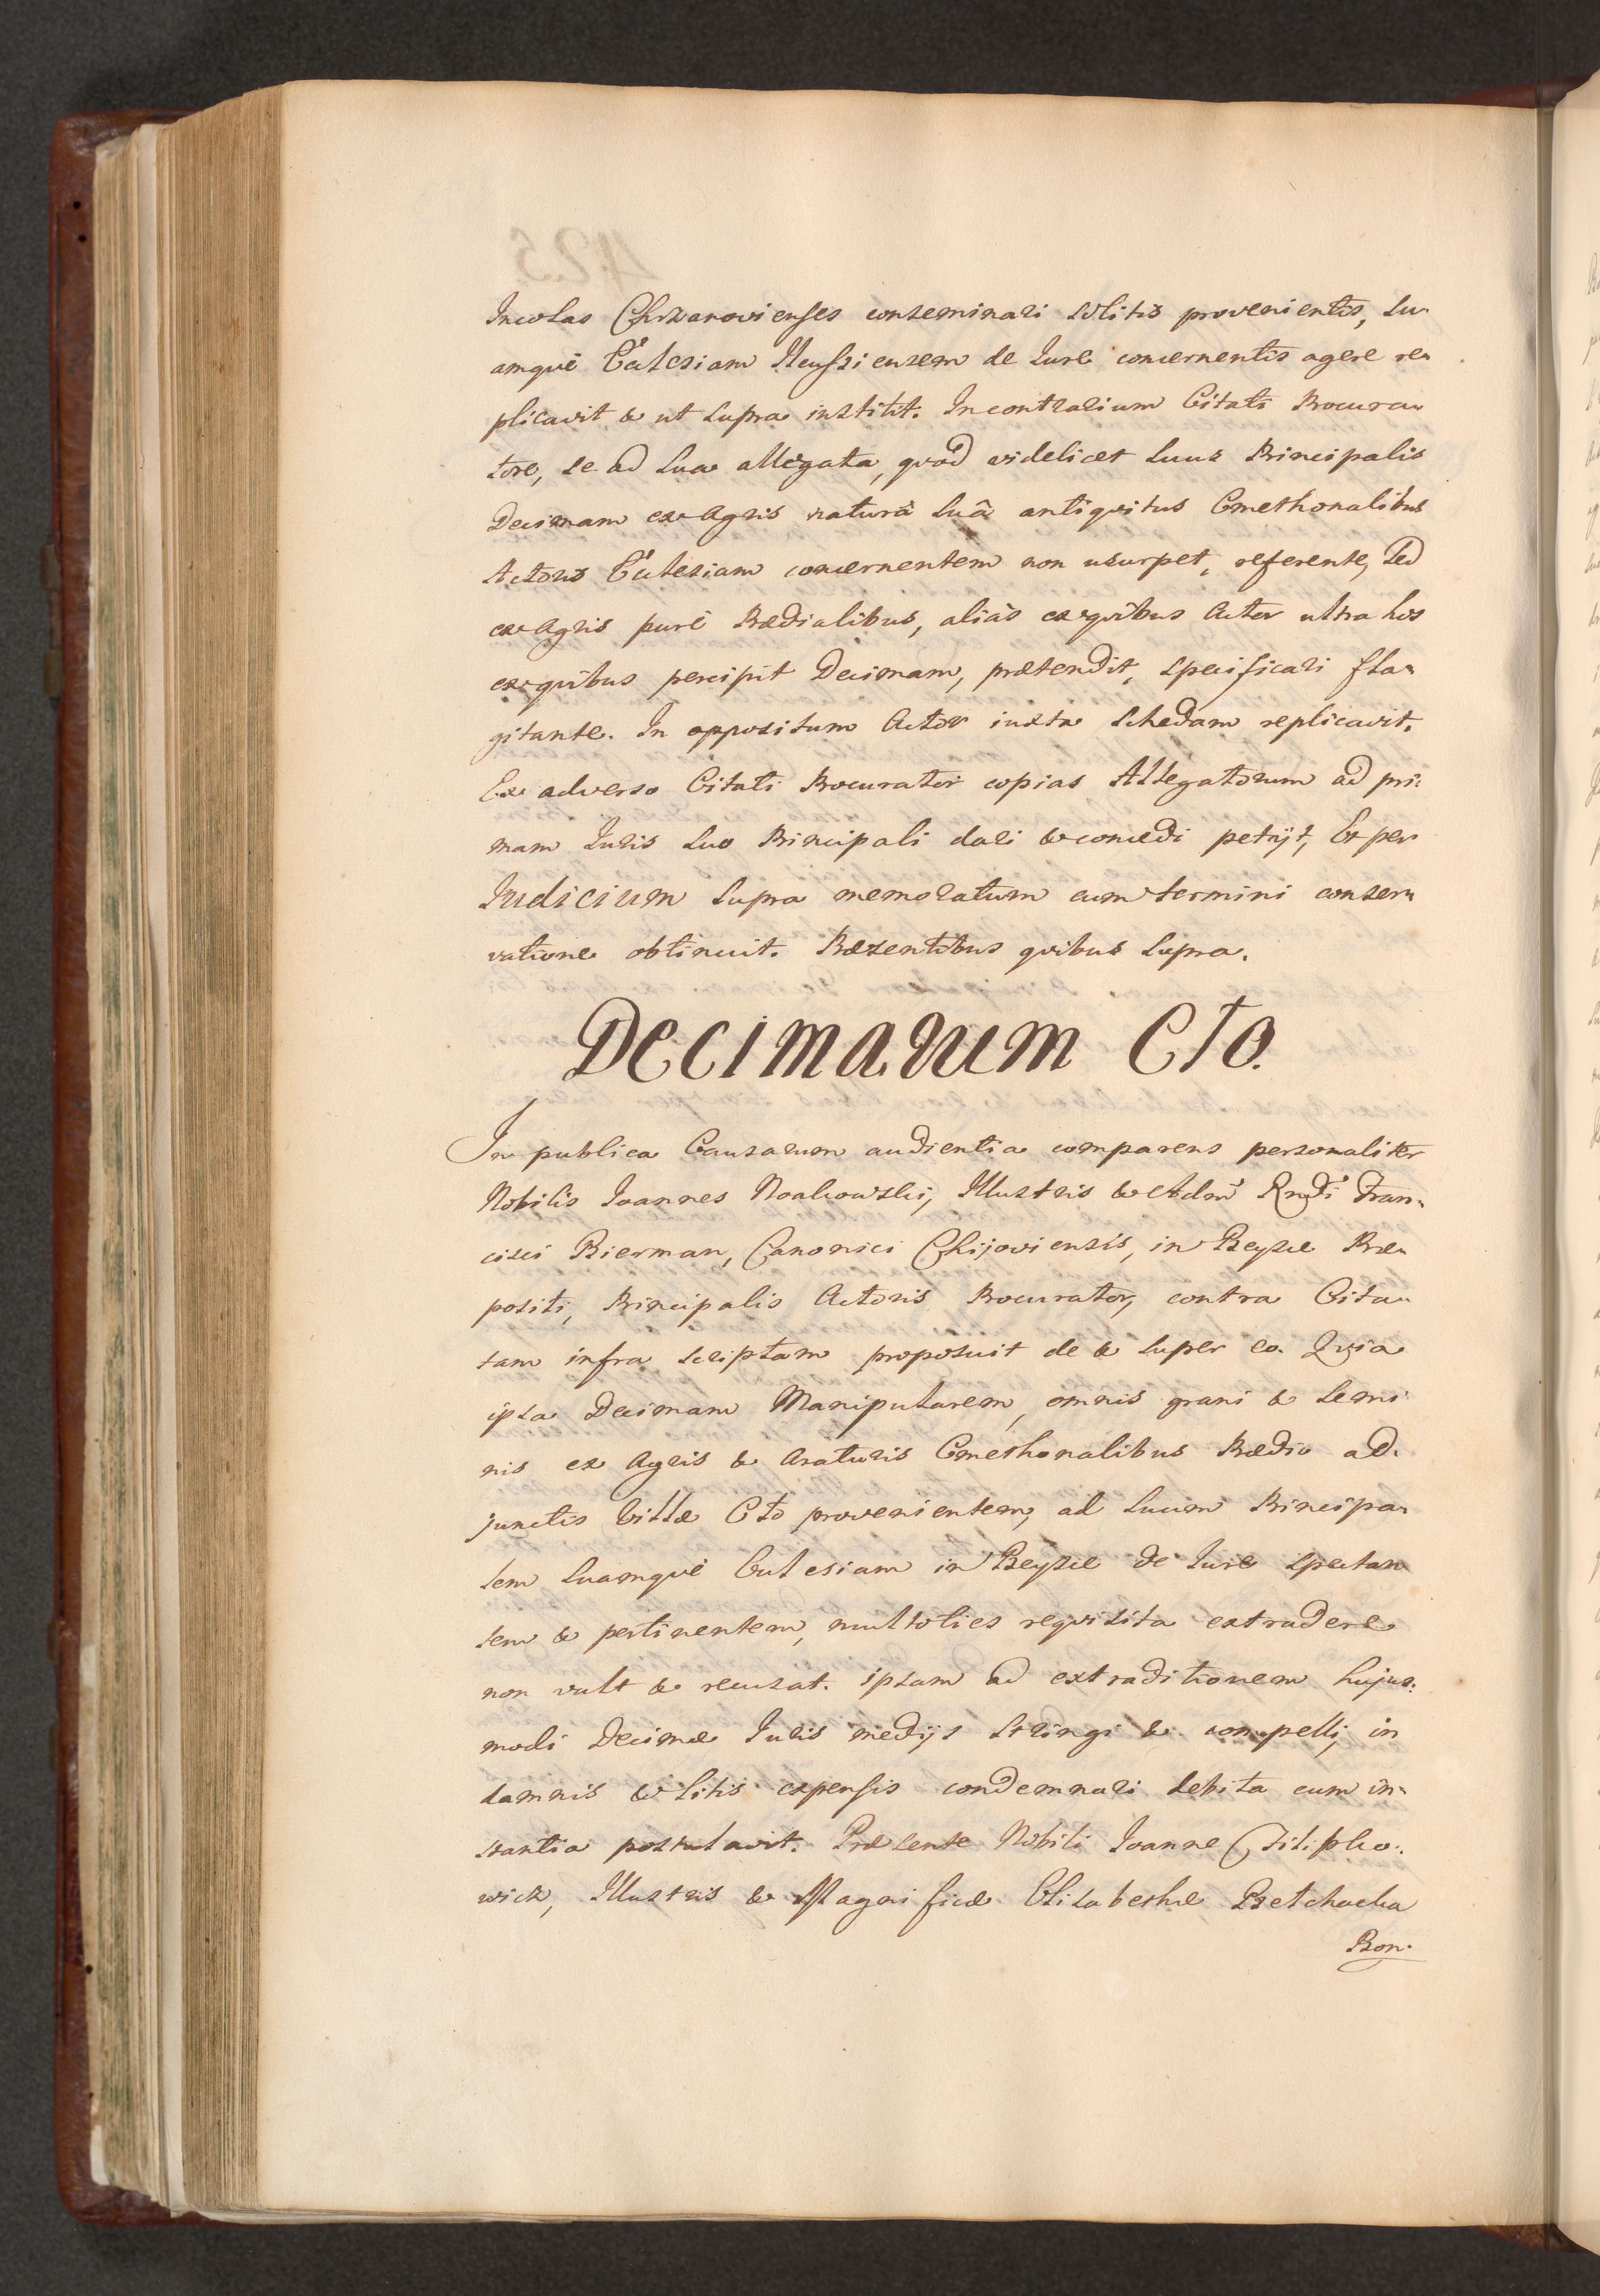 Incolas Chrzanovienses conseminari solitis provenientis, su-
amquè Ecclesiam de Iure concernentis agere re-
plicavit & ut supra institit. In contrarium Citati Procura-
tore, se ad sua allegata, quod videlicet suus Principalis
Decimam ex Agris naturâ suâ antiquitus Cmethonalibus
Actoris Ecclesiam concernentem non usurpet, referente, sed
ex Agris purè Prædialibus, aliàs ex quibus Actor ultra hos
ex quibus percipit Decimam, prætendit, specificari fla-
gitante. In oppositum Actor iuxta Schedam replicavit.
Ex adverso Citati Procurator copias Allegatorum ad pri-
mam Iuris suo Principali dari & concedi petijt, Et per
Iudicium supra memoratum cum termini conser-
vatione obtinuit. Præsentibus quibus supra.
Decimarum Cło.
In publica Causarum audientia comparens personaliter
Nobilis Ioannes Noakowski, Illustris & Adm Rndi Fran-
cisci Bierman, Canonici Chijoviensis, in Beysce Præ-
positi, Principalis Actoris Procurator, contra Cita-
tam infra scriptam proposuit de & super eo. Quia
ipsa Decimam Manipularem, omnis grani & semi
nis ex Agris & Araturis Cmethonalibus Prædio ad-
junctis Villæ Cło provenientem, ad suum Principa-
lem suamquè Ecclesiam in Beysce de Iure spectan
tem & pertinentem, multoties requisita extradere
non vult & recusat. ipsam ad extraditionem hujus-
modi Decimæ Iuris medijs stringi & compelli, in
damnis & litis expensis condemnari debita cum in-
stantia postulavit. Præsente Nobili Ioanne Filipko-
wicz, Illustris & Magnificæ Elisabethæ
Bon-